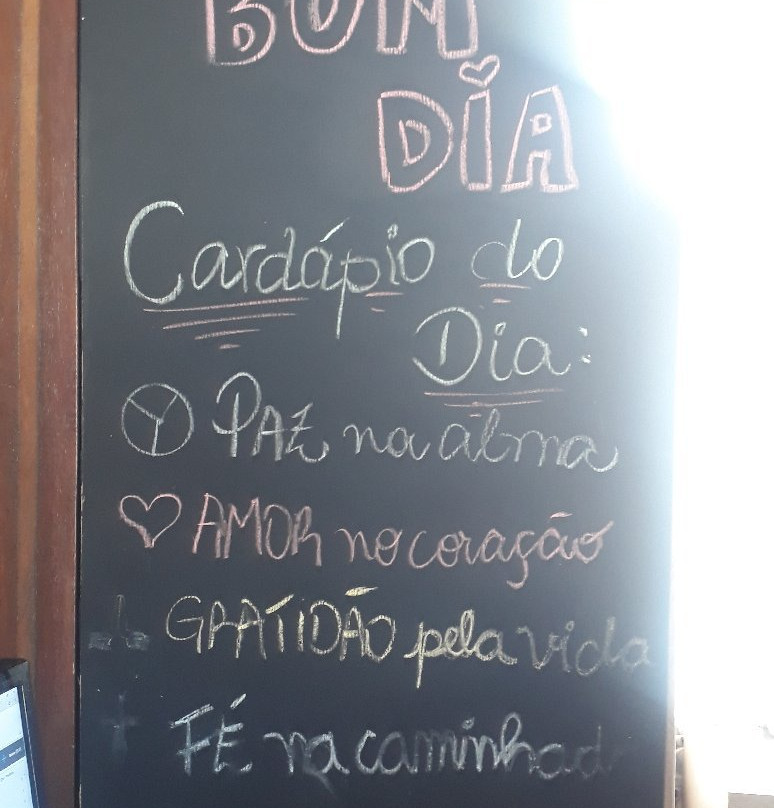 BOM
DIA
Cardápio do
Dia:
PAZ na alma
AMOR no coração
GRATIDÃO pela vida
FÉ na caminhada